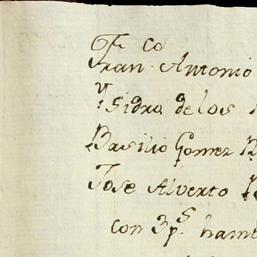 Fr Co
Fran Antonio
Ysidra de los
Basilio Gomez
Jose Alverto
con 3 ps hamb